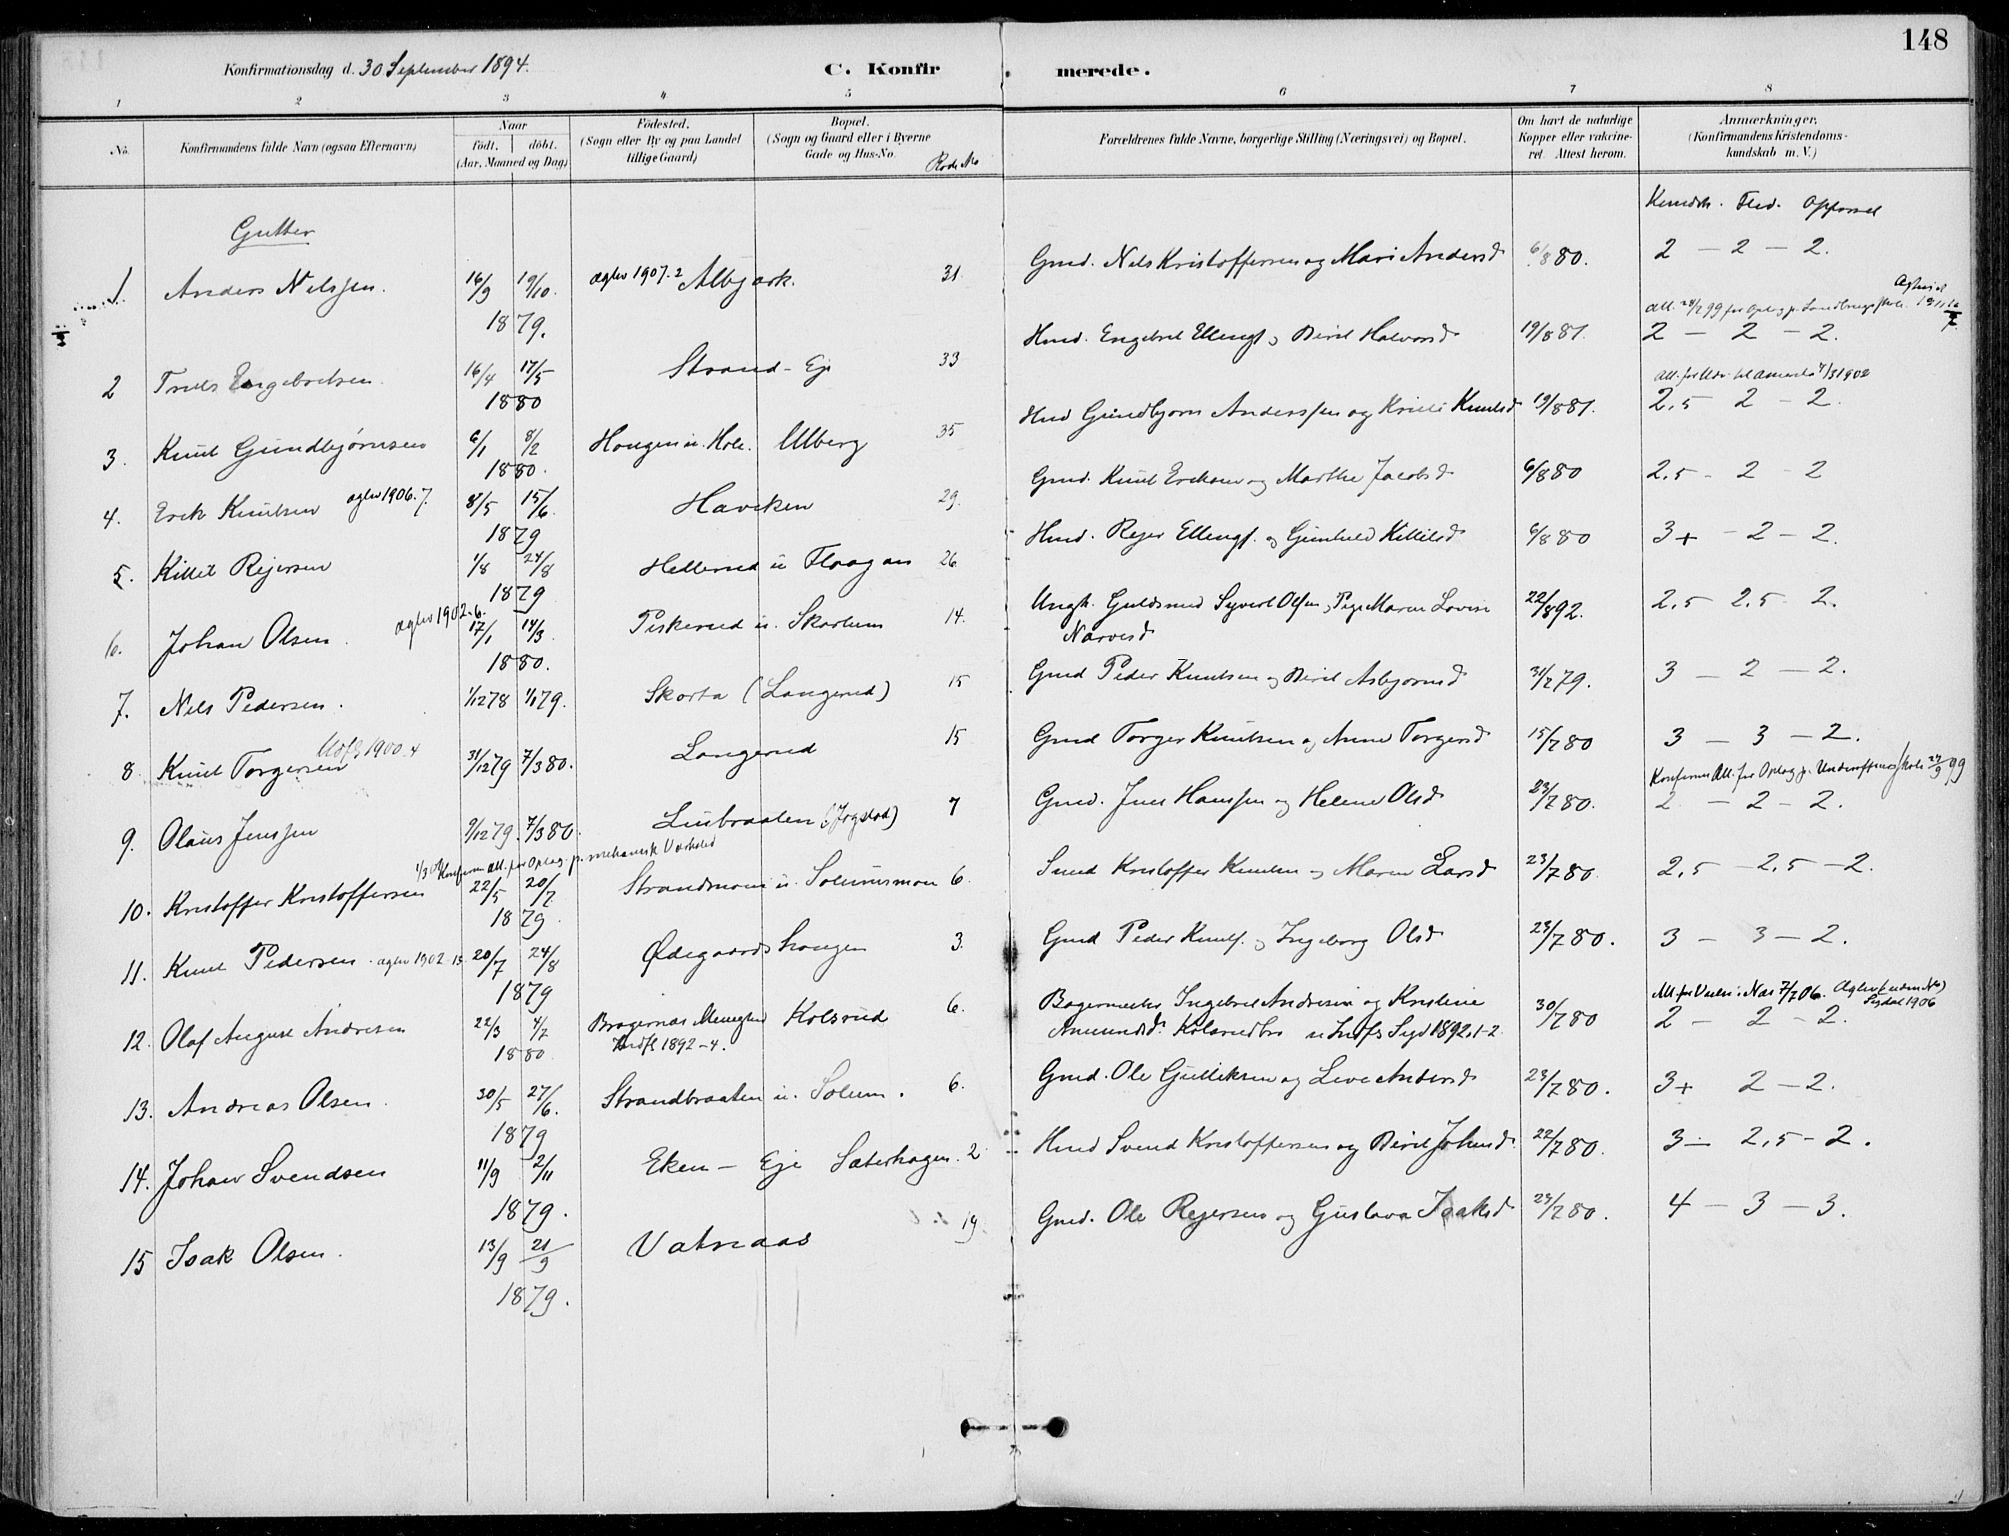 148
Konfirmationsdag d. 30 September 1894.
C. Konfirmerede.
1 2 3 4 5 6 7 8
No.
Konfirmandens fulde Navn (ogsaa Efternavn)
Naar
födt. döbt.
(Aar, Maaned og Dag)
Födested.
(Sogn eller By og paa Landet
tillige Gaard)
Bopæl.
(Sogn og Gaard eller i Byerne
Gade og Hus-No.
Rode No
Forældrenes fulde Navne, borgerlige Stilling (Næringsvei) og Bopæl.
Om havt de naturlige
Kopper eller vakcine-
ret. Attest herom.
Anmærkninger.
(Konfirmandens Kristendoms-
kundskab m. V.)
Kundsk. Flid. Opførsel
Gutter
1. Anders Nilssen. 16/9 19/10 1879. aglev 1907.2 Albjerk. 31. Gmd. Nels Kristoffersen og Mari Andersd 6/8 80. 2 – 2 – 2.
2 Truls Engebretsen 16/4 17/5 1880 Strand – Eje 33 Hmd. Engebret Ellengs. og Beret Halvorsd 19/8 81. 2 – 2 – 2.
3. Knut Gundbjørnsen 6/1 8/2 1880. Hougen u. Hole. Ulberg 35 Hmd Gundbjørn Anderssen og Kristi Knutsd 19/8 81. 2,5 2 – 2.
Att. for Udv. til Amerika 4/3 1902
4. Erek Knutsen aglev 1906.7. 8/5 15/6 1879 Haviken 29. Gmd. Knut Ereksen og Marthe Jacobsd 6/8 80 2,5 – 2 – 2
5. Kittel Rejersen 1/8 24/8 1879 Hellerud u Flaagan 26 Hmd. Rejer Ellengs. og Gunhild Kittilsd 6/8 80 3+ – 2 – 2.
6. Johan Olsen. aglev 1902.6. 17/1 14/3 1880. Piskerud u. Skartum 14. Ungk. Guldsmed Syvert Olsen, Pige Maren Lovise Narvesd 22/8 92. 2,5 2,5 2.
7. Nels Pedersen. 1/12 78 1/1 79. Skarta (Langerud) 15 Gmd Peder Knutsen og Beret Asbjørnsd 31/2 79. 3 – 2 – 2.
8. Knut Torgersen Udfl. 1900.4 31/12 79 7/3 80. Langerud 15 Gmd Torger Knutsen og Anne Torgersd 15/7 80 3 – 3 – 2.
9. Olaus Jenssen 9/12 79. 7/3 80. Liubraaten (Jogstad) 7 Gmd. Jens Hanssen og Helene Olsd 23/7 80. 2 – 2 – 2.
Konfirm. Att. for Optag. p. Underoffisersskole 24/9 99
10. Kristoffer Kristoffersen 22/5 20/7 1879. Strandmoen u. Solumsmoen 6. Smed Kristoffer Knutsen og Maren Larsd 23/7 80. 2,5 – 2,5 – 2.
Konfirm. Att. for Optag. p. mekanisk Værksted
11. Knut Pedersen. aglev 1902.13. 20/7 24/8 1879 Ødegaardshougen 3. Gmd Peder Knuts. og Ingeborg Olsd 23/7 80. 3 – 3 – 2.
12. Olaf August Andresen 22/3 4/7 1880 Bragernæs Menighed Kolsrud 6. Indfl 1892–4. Bagermester Ingebret Andresen og Kristine Amundsd. Kolsrudbro u Indfl Sygd 1892.1–2. 30/7 80 2 – 2 – 2.
Att. for Vielse i Næs 7/7 06. Aglev (uden No) Sigdal 1906
13. Andreas Olsen. 30/5 27/6. 1879 Strandbraaten u. Solum. 6. Gmd. Ole Gulliksen og Live Andersd 23/7 80. 3+ 2 – 2.
14. Johan Svendsen 11/9 2/11 1879. Eken – Eje Sæterhagen. 2 Hmd Svend Kristoffersen og Beret Johnsd. 22/7 80. 3 – 2,5 – 2.
15 Isak Olsen. 13/9 21/9 1879. Vatnaas 19. Gmd. Ole Rejersen og Gustava Isaksd 24/7 80. 4 – 3 – 3.